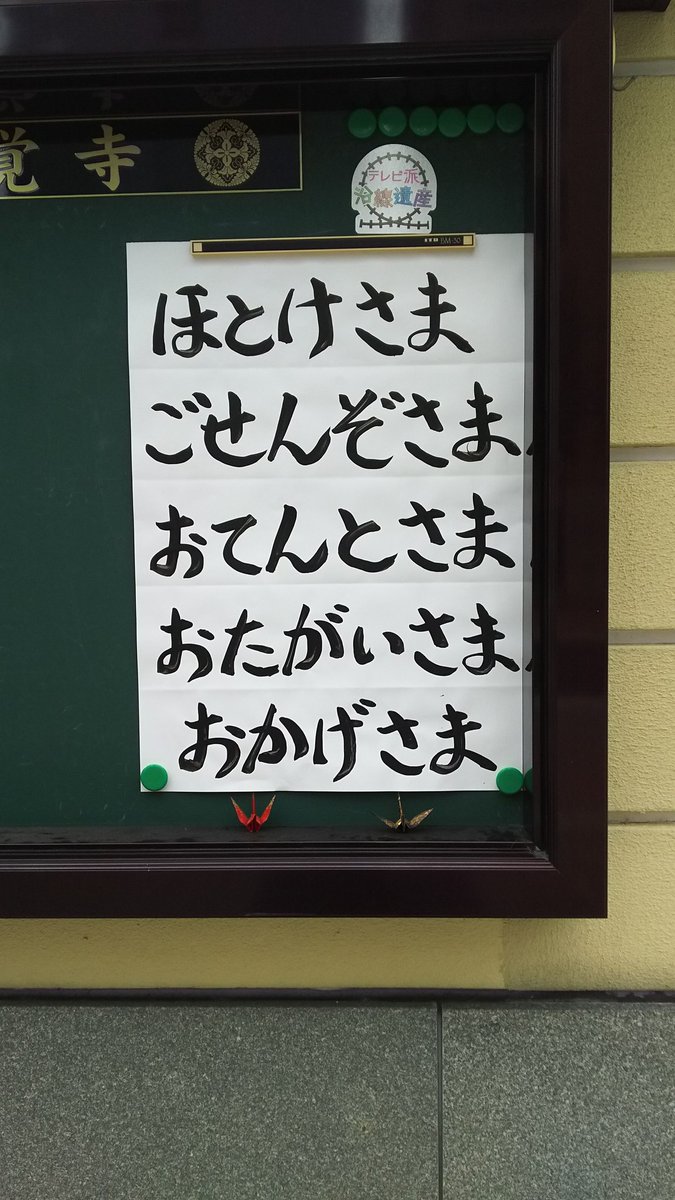 覚寺
テレビ派
沿線遺産
BM-30
ほとけさま
ごせんぞさま
おてんとさま
おたがいさま
おかげさま